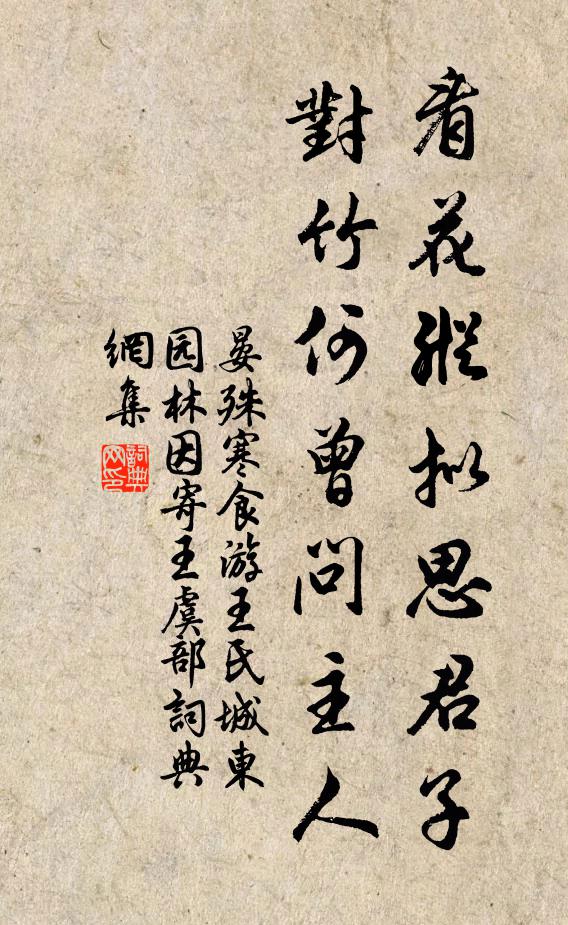 看花縱拟思君子
對竹何曾問主人
晏殊寒食游王氏城東
园林因寄王虞部詞典
網集
詞典
网印